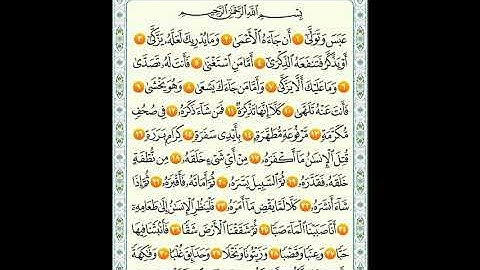 بِسْمِ ٱللَّهِ ٱلرَّحْمَٰنِ ٱلرَّحِيمِ
عَبَسَ وَتَوَلَّىٰٓ ١ أَن جَآءَهُ ٱلْأَعْمَىٰ ٢ وَمَا يُدْرِيكَ لَعَلَّهُۥ يَزَّكَّىٰٓ ٣
أَوْ يَذَّكَّرُ فَتَنفَعَهُ ٱلذِّكْرَىٰٓ ٤ أَمَّا مَنِ ٱسْتَغْنَىٰ ٥ فَأَنتَ لَهُۥ تَصَدَّىٰ
٦ وَمَا عَلَيْكَ أَلَّا يَزَّكَّىٰ ٧ وَأَمَّا مَن جَآءَكَ يَسْعَىٰ ٨ وَهُوَ يَخْشَىٰ ٩
فَأَنتَ عَنْهُ تَلَهَّىٰ ١٠ كَلَّآ إِنَّهَا تَذْكِرَةٌ ١١ فَمَن شَآءَ ذَكَرَهُۥ ١٢ فِى صُحُفٍ
مُّكَرَّمَةٍ ١٣ مَّرْفُوعَةٍ مُّطَهَّرَةٍۭ ١٤ بِأَيْدِى سَفَرَةٍ ١٥ كِرَامٍۭ بَرَرَةٍ ١٦
قُتِلَ ٱلْإِنسَٰنُ مَآ أَكْفَرَهُۥ ١٧ مِنْ أَىِّ شَىْءٍ خَلَقَهُۥ ١٨ مِن نُّطْفَةٍ
خَلَقَهُۥ فَقَدَّرَهُۥ ١٩ ثُمَّ ٱلسَّبِيلَ يَسَّرَهُۥ ٢٠ ثُمَّ أَمَاتَهُۥ فَأَقْبَرَهُۥ ٢١ ثُمَّ إِذَا
شَآءَ أَنشَرَهُۥ ٢٢ كَلَّا لَمَّا يَقْضِ مَآ أَمَرَهُۥ ٢٣ فَلْيَنظُرِ ٱلْإِنسَٰنُ إِلَىٰ طَعَامِهِۦٓ
٢٤ أَنَّا صَبَبْنَا ٱلْمَآءَ صَبًّا ٢٥ ثُمَّ شَقَقْنَا ٱلْأَرْضَ شَقًّا ٢٦ فَأَنۢبَتْنَا فِيهَا
حَبًّا ٢٧ وَعِنَبًا وَقَضْبًا ٢٨ وَزَيْتُونًا وَنَخْلًا ٢٩ وَحَدَآئِقَ غُلْبًا ٣٠ وَفَٰكِهَةً